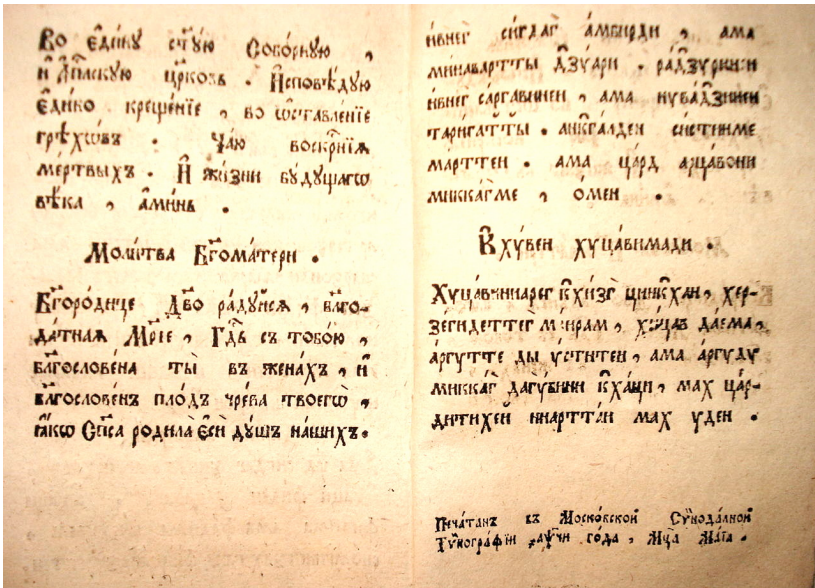 Во є҆ди́нꙋ ст҃ꙋ́ю Собо́рнꙋю ,
и҆ А҆п҇лскꙋю цр҃ковь . И҆сповѣ́дꙋю
є҆ди́но креще́нїе , во ѡ҆ставле́нїе
грѣхѡ́въ . Ча́ю воскр҇нїѧ
ме́ртвыхъ . И҆ жи́зни бꙋ́дꙋщагѡ
вѣ́ка , а҆ми́нь .
Моли́тва Бг҃ома́тери .
Бг҃оро́дице Дв҃о ра́дꙋйсѧ , бл҃го-
да́тнаѧ Мр҃і́е , Гд҇ь съ тобо́ю ,
бл҃гослове́на ты̀ въ жена́хъ , и҆
бл҃гослове́нъ пло́дъ чре́ва твоегѡ̀ ,
ꙗ҆́кѡ Сп҃са родила̀ є҆сѝ дꙋ́шъ на́шихъ .
и҆внег̀ си́гдаг̀ а҆́мбирди , ама
минавартты̀ дзꙋа́ри .
и҆внег̀ са́ргавинен , ама нꙋва́дзинен
таригат҇ты̀ . сисѣтиме
марттен . ама ца́рд а҆рцавони
миккаг̀ме , о҆́мен .
Кхꙋ́вен хꙋца́вимади .
Хꙋцавиннарег̀ кхизг̀ цинкхан , хер-
зе́гидеттег̀ ми́рам , хꙋ́цав да́ема ,
а҆́ргꙋтте ды ꙋститен , ама а҆́ргꙋдꙋ
миккаг̀ дагꙋ́бинн кха́ци , мах ца́р-
дитихей ниартта́н мах ꙋден .
Печа́танъ въ Моско́вской Сѷнода́лной
Тѷпогра́фїи ҂аѱчи го́да , Мц҇а Ма́їа .